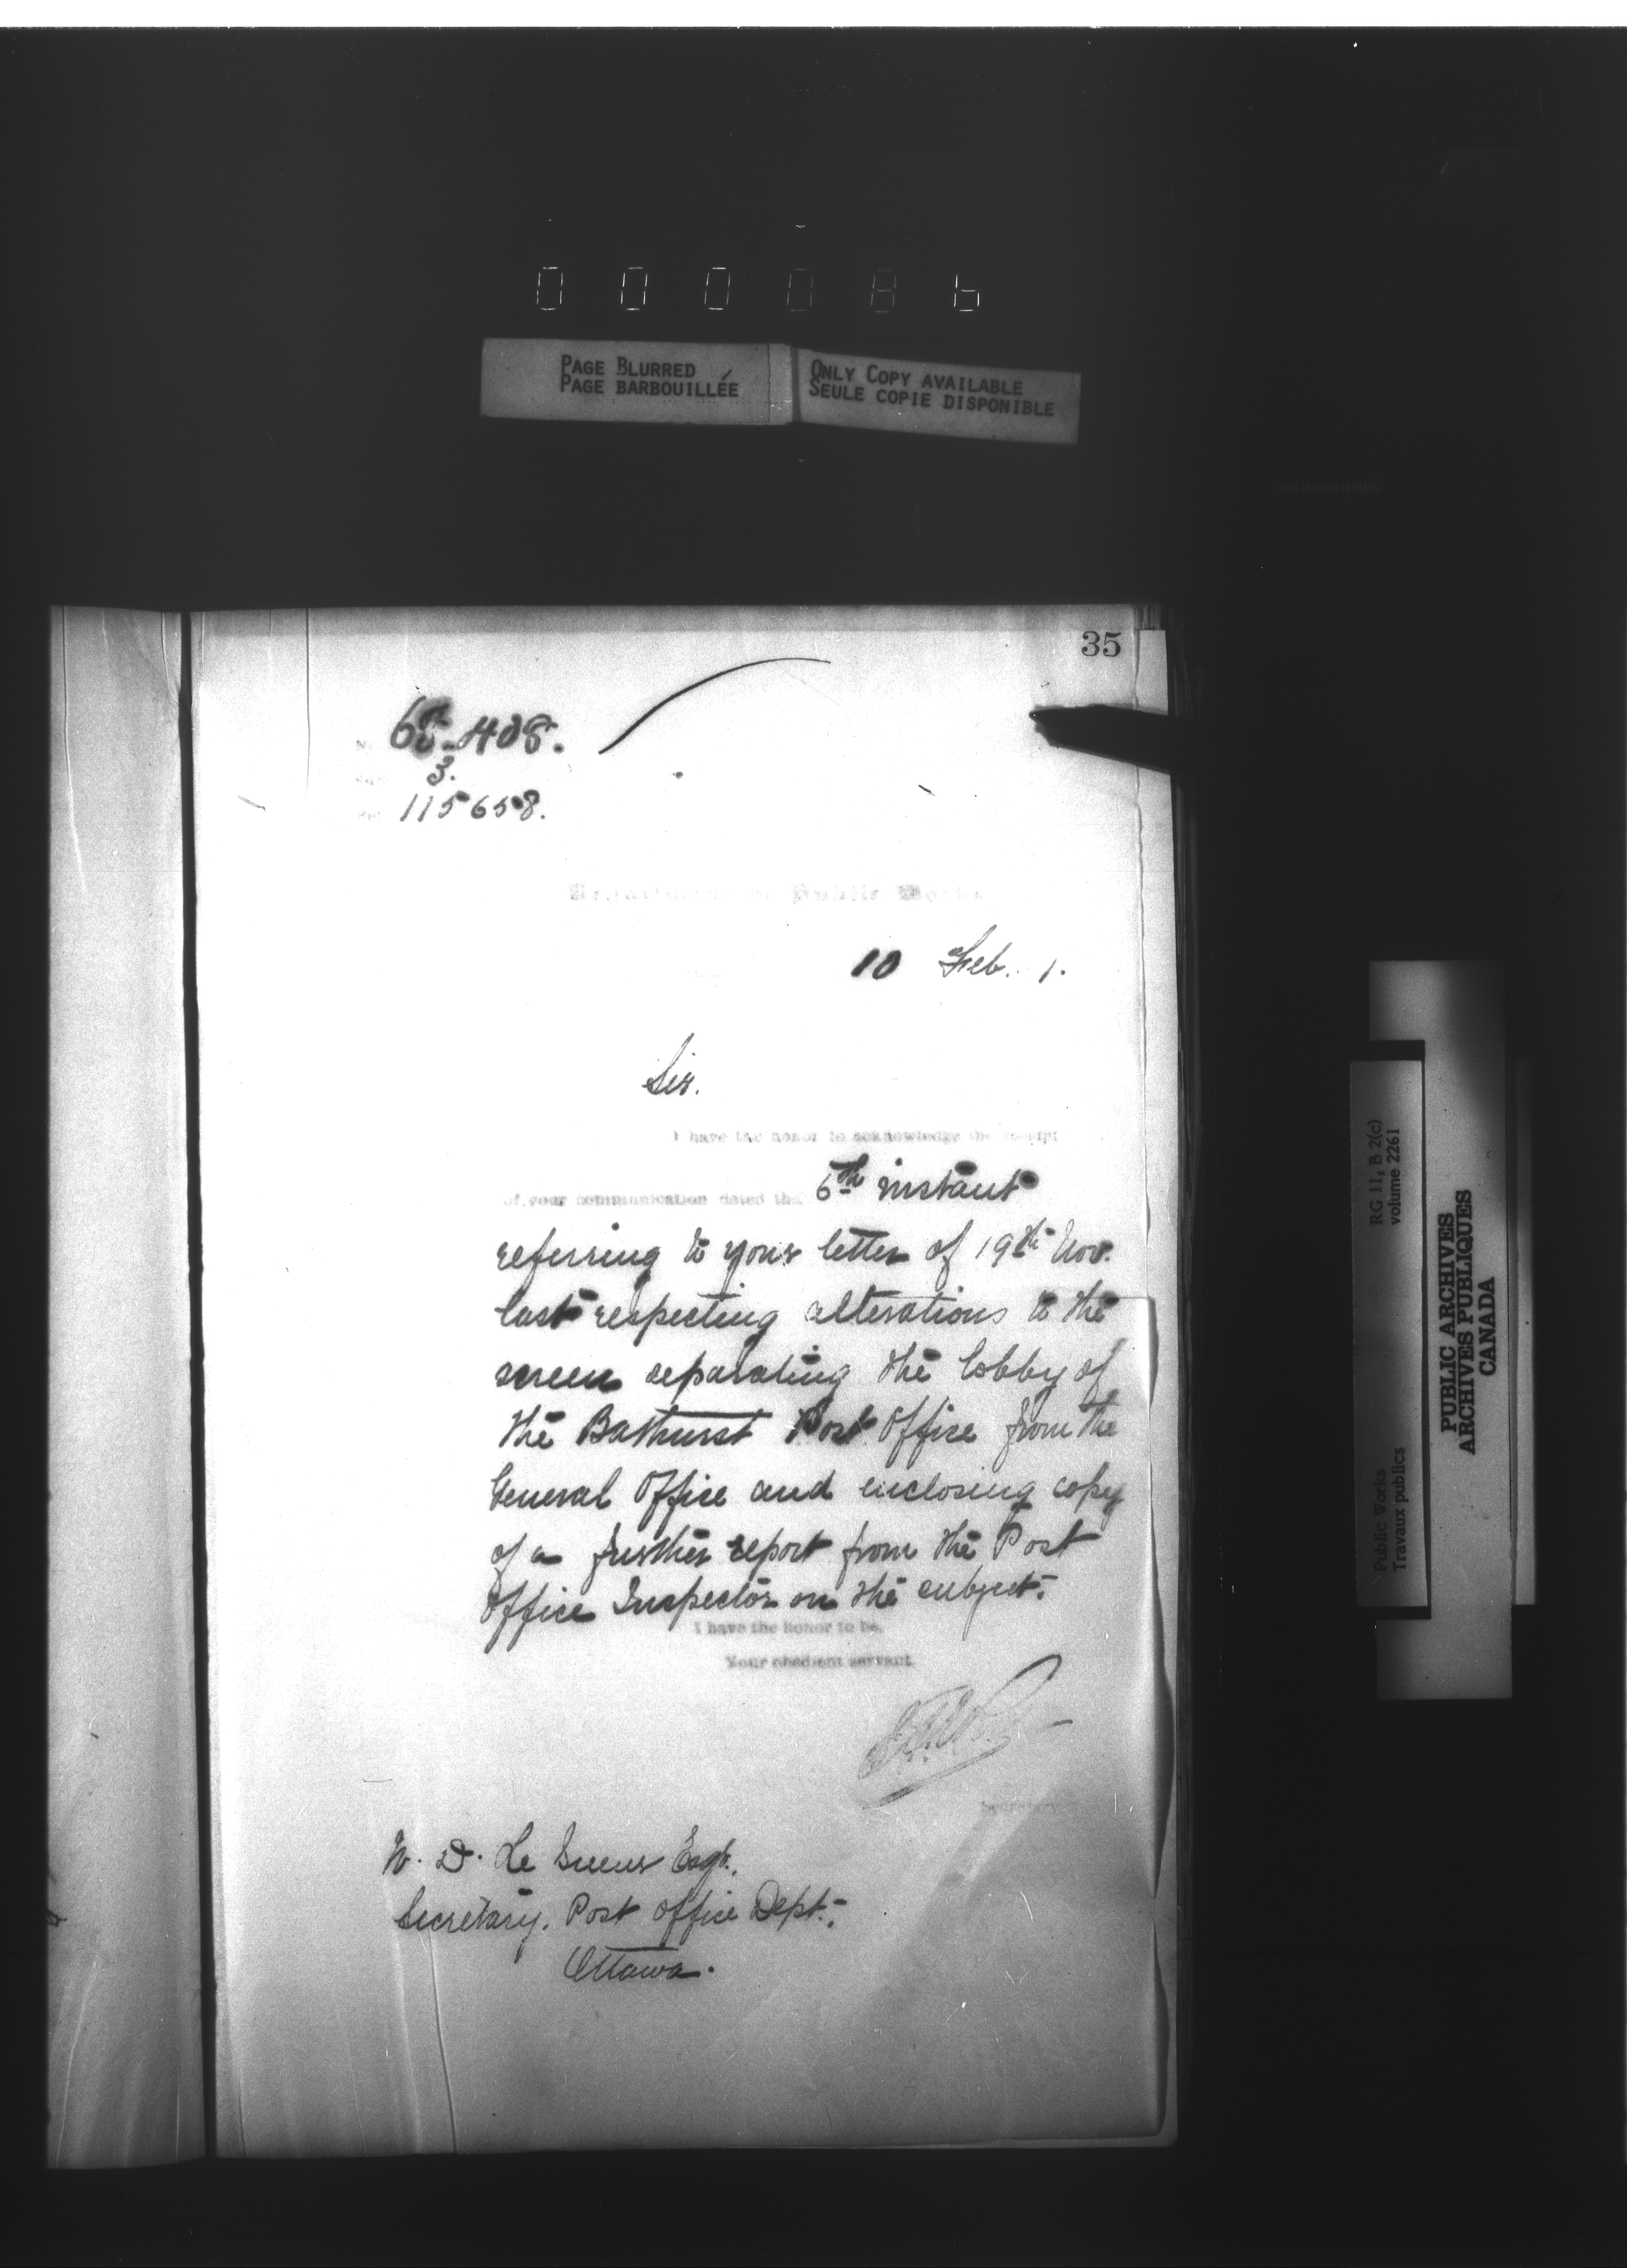 PAGE BLURRED
PAGE BARBOUILLÉE
ONLY COPY AVAILABLE
SEULE COPIE DISPONIBLE
35
3.
115658.
10 Feb. 1.
Sir.
I have the honor to acknowledge the receipt
of your communication dated the 6th instant
referring to your letter of 19th Nov.
last respecting alterations to the
screen separating the lobby of
the Bathurst Post Office from the
General Office and enclosing copy
of a further report from the Post
Office Inspector on the subject.
I have the honor to be,
Your obedient servant
W. D. Le Sueur Esqr.
Secretary. Post Office Dept.
Ottawa.
RG 11, B 2(c)
volume 2261
Public Works
Travaux publics
PUBLIC ARCHIVES
ARCHIVES PUBLIQUES
CANADA